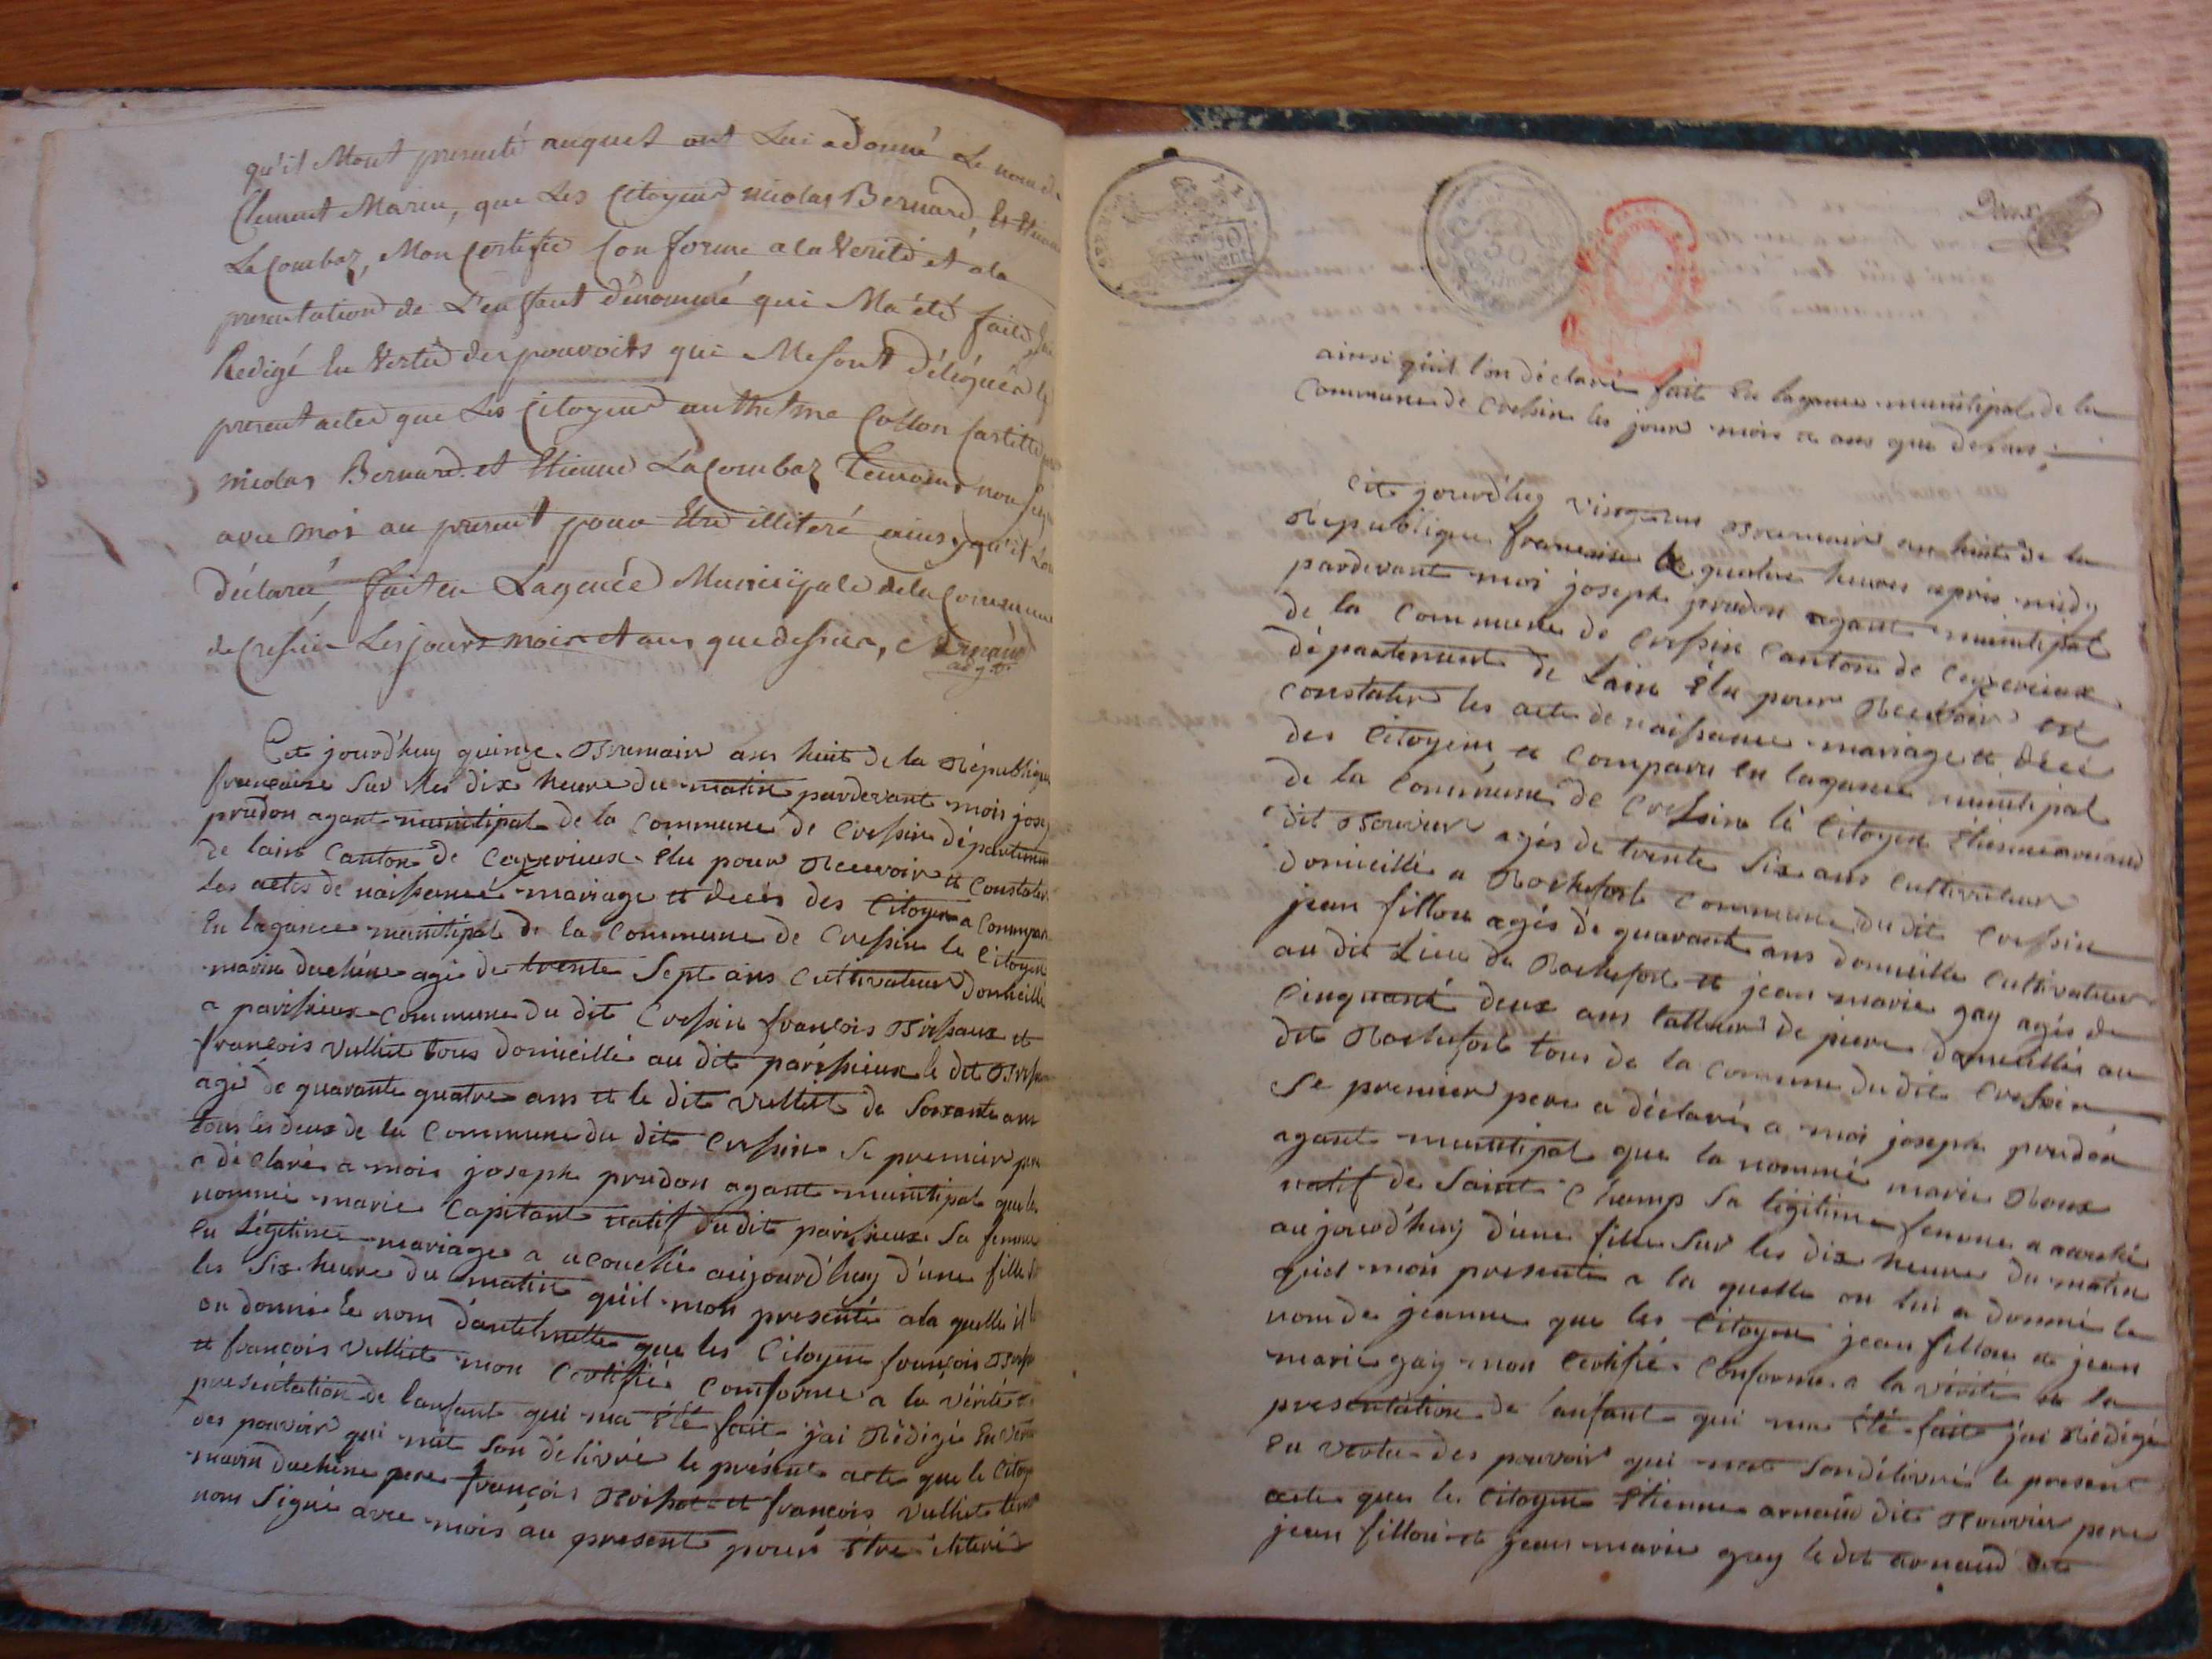 qu'il Mont presenté auquel ont Lui a donné Le nom de
Clement Marin, que Les Citoyens nicolas Bernard, Et Etienne
Lacombaz, Mon Certifié Conforme a la Verité et a la
presentation de L'enfant dénommé qui Ma été faite
Redigé En Vertu des pouvoirs qui Me sont délégués le
present acte que Les Citoyens anthelme Collon
nicolas Bernard et Etienne Lacombaz Temoins non
avec moi au present pour Etre illiteré ainsy qu'il
déclaré, fait en L'agence Municipale de la Commune
de Cressin Les jours mois et ans que dessus, Arnaud
agt
Cet jourd'huy quinze Brumair ans huit de la République
francaise sur les dix heure du matin pardevant mois
prudon agant munitipal de la Commune de Cressin département
de lain Canton de Ceyzerieux Elu pour Recevoir et Constater
Les actes de naissance mariage et deces des Citoyen a Compar
En lagance munitipal de la Commune de Cressin le Citoyen
marin duchêne agé de trente Sept ans Cultivateur domicillé
a parissieux Commune du dit Cressin françois Brissaux et
francois Vulliet tous domicillé au dit parissieux le dit
agé de quarante quatre ans et le dit Vulliet de Soixante ans
tous les deux de la Commune du dit Cressin Se premier per
a déclaré a mois joseph prudon agant munitipal que la
nommé marie Capitant natif du dit parissieux Sa femme
En Légitime mariage a acouché aujourd'huy d'une fille
les Six heure du matin qu'il mon presenté a la quelle il
on donné le nom dantelmette que les Citoyen françois
et françois Vulliet mon Certifié Comforme a la vérité
presentation de lanfant qui ma Eté fait j'ai Rédigé En
des pouvoir qui mat Son délivré le présent acte que le Citoy
marin duchêne pere françois et françois Vulliet
nom Signé avec mois au present pour être
Deux
50
cent
ainsi qu'il l'on déclaré fait En lagance munitipal de la
Commune de Cressin les jour mois et ans que dessus
Cet jourd'huy vingt un Brumair an huit de la
République francaise quatre heures apres midy
pardevant moi joseph prudon agant munitipal
de la Commune de Cressin Canton de Ceyzerieux
département de Lain Elu pour Recevoir et
Constater les acte de naissance mariage et décé
des Citoyens a Comparu En lagance munitipal
de la Commune de Cressin le Citoyen Etienne arnaud
dit Bouvier agés de trente Six ans Cultivateur
domicillé a Rochefort Commune du dit Cressin
jean fillou agés de quarant ans domicille Cultivateur
au dit Lieu de Rochefort et jean marie gay agés de
Cinquanté deux ans talleur de piere domicillé au
dit Rochefort tous de la Commune du dit Cressin
Se premier pere a déclaré a moi joseph prudon
agant munitipal que la nommé marie Roux
natif de Saint Champ Sa légitime femme a acouché
aujourd'huy d'une fille Sur les dix heure du matin
quil mon presenté a la quelle on lui a donné le
nom de jeanne que les Citoyen jean fillou et jean
marie gay mon Certifié Conforme a la vérité et la
presentation de lanfant qui ma Eté fait j'ai Rédigé
En vertu des pouvoir qui mat Son délivré le present
acte que les Citoyen Etienne arnaud dit Bouvier pere
jean fillou et jean marie gay le dit arnaud